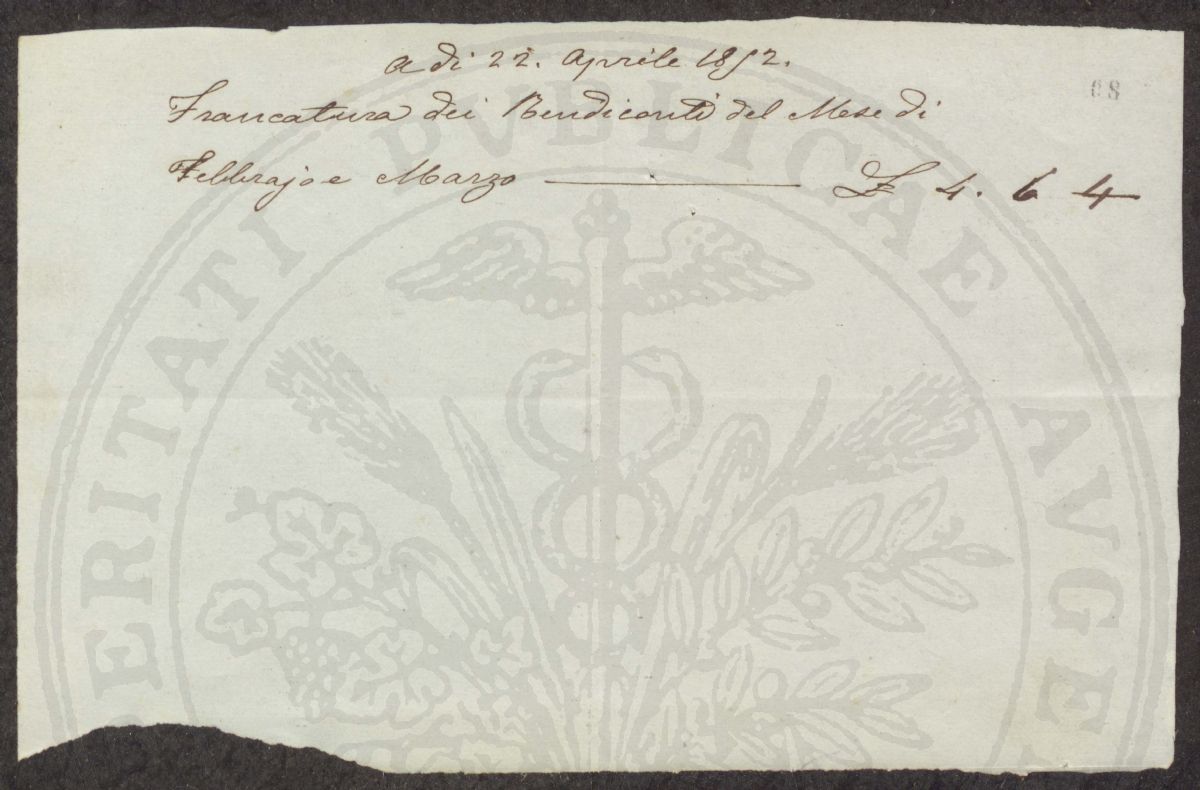 a di 22. Aprile 1852.
68
Francatura dei Rendiconti del Mese di
Febbrajo e Marzo £ 4. 6 4
PERITATI PVBLICAE AVGE